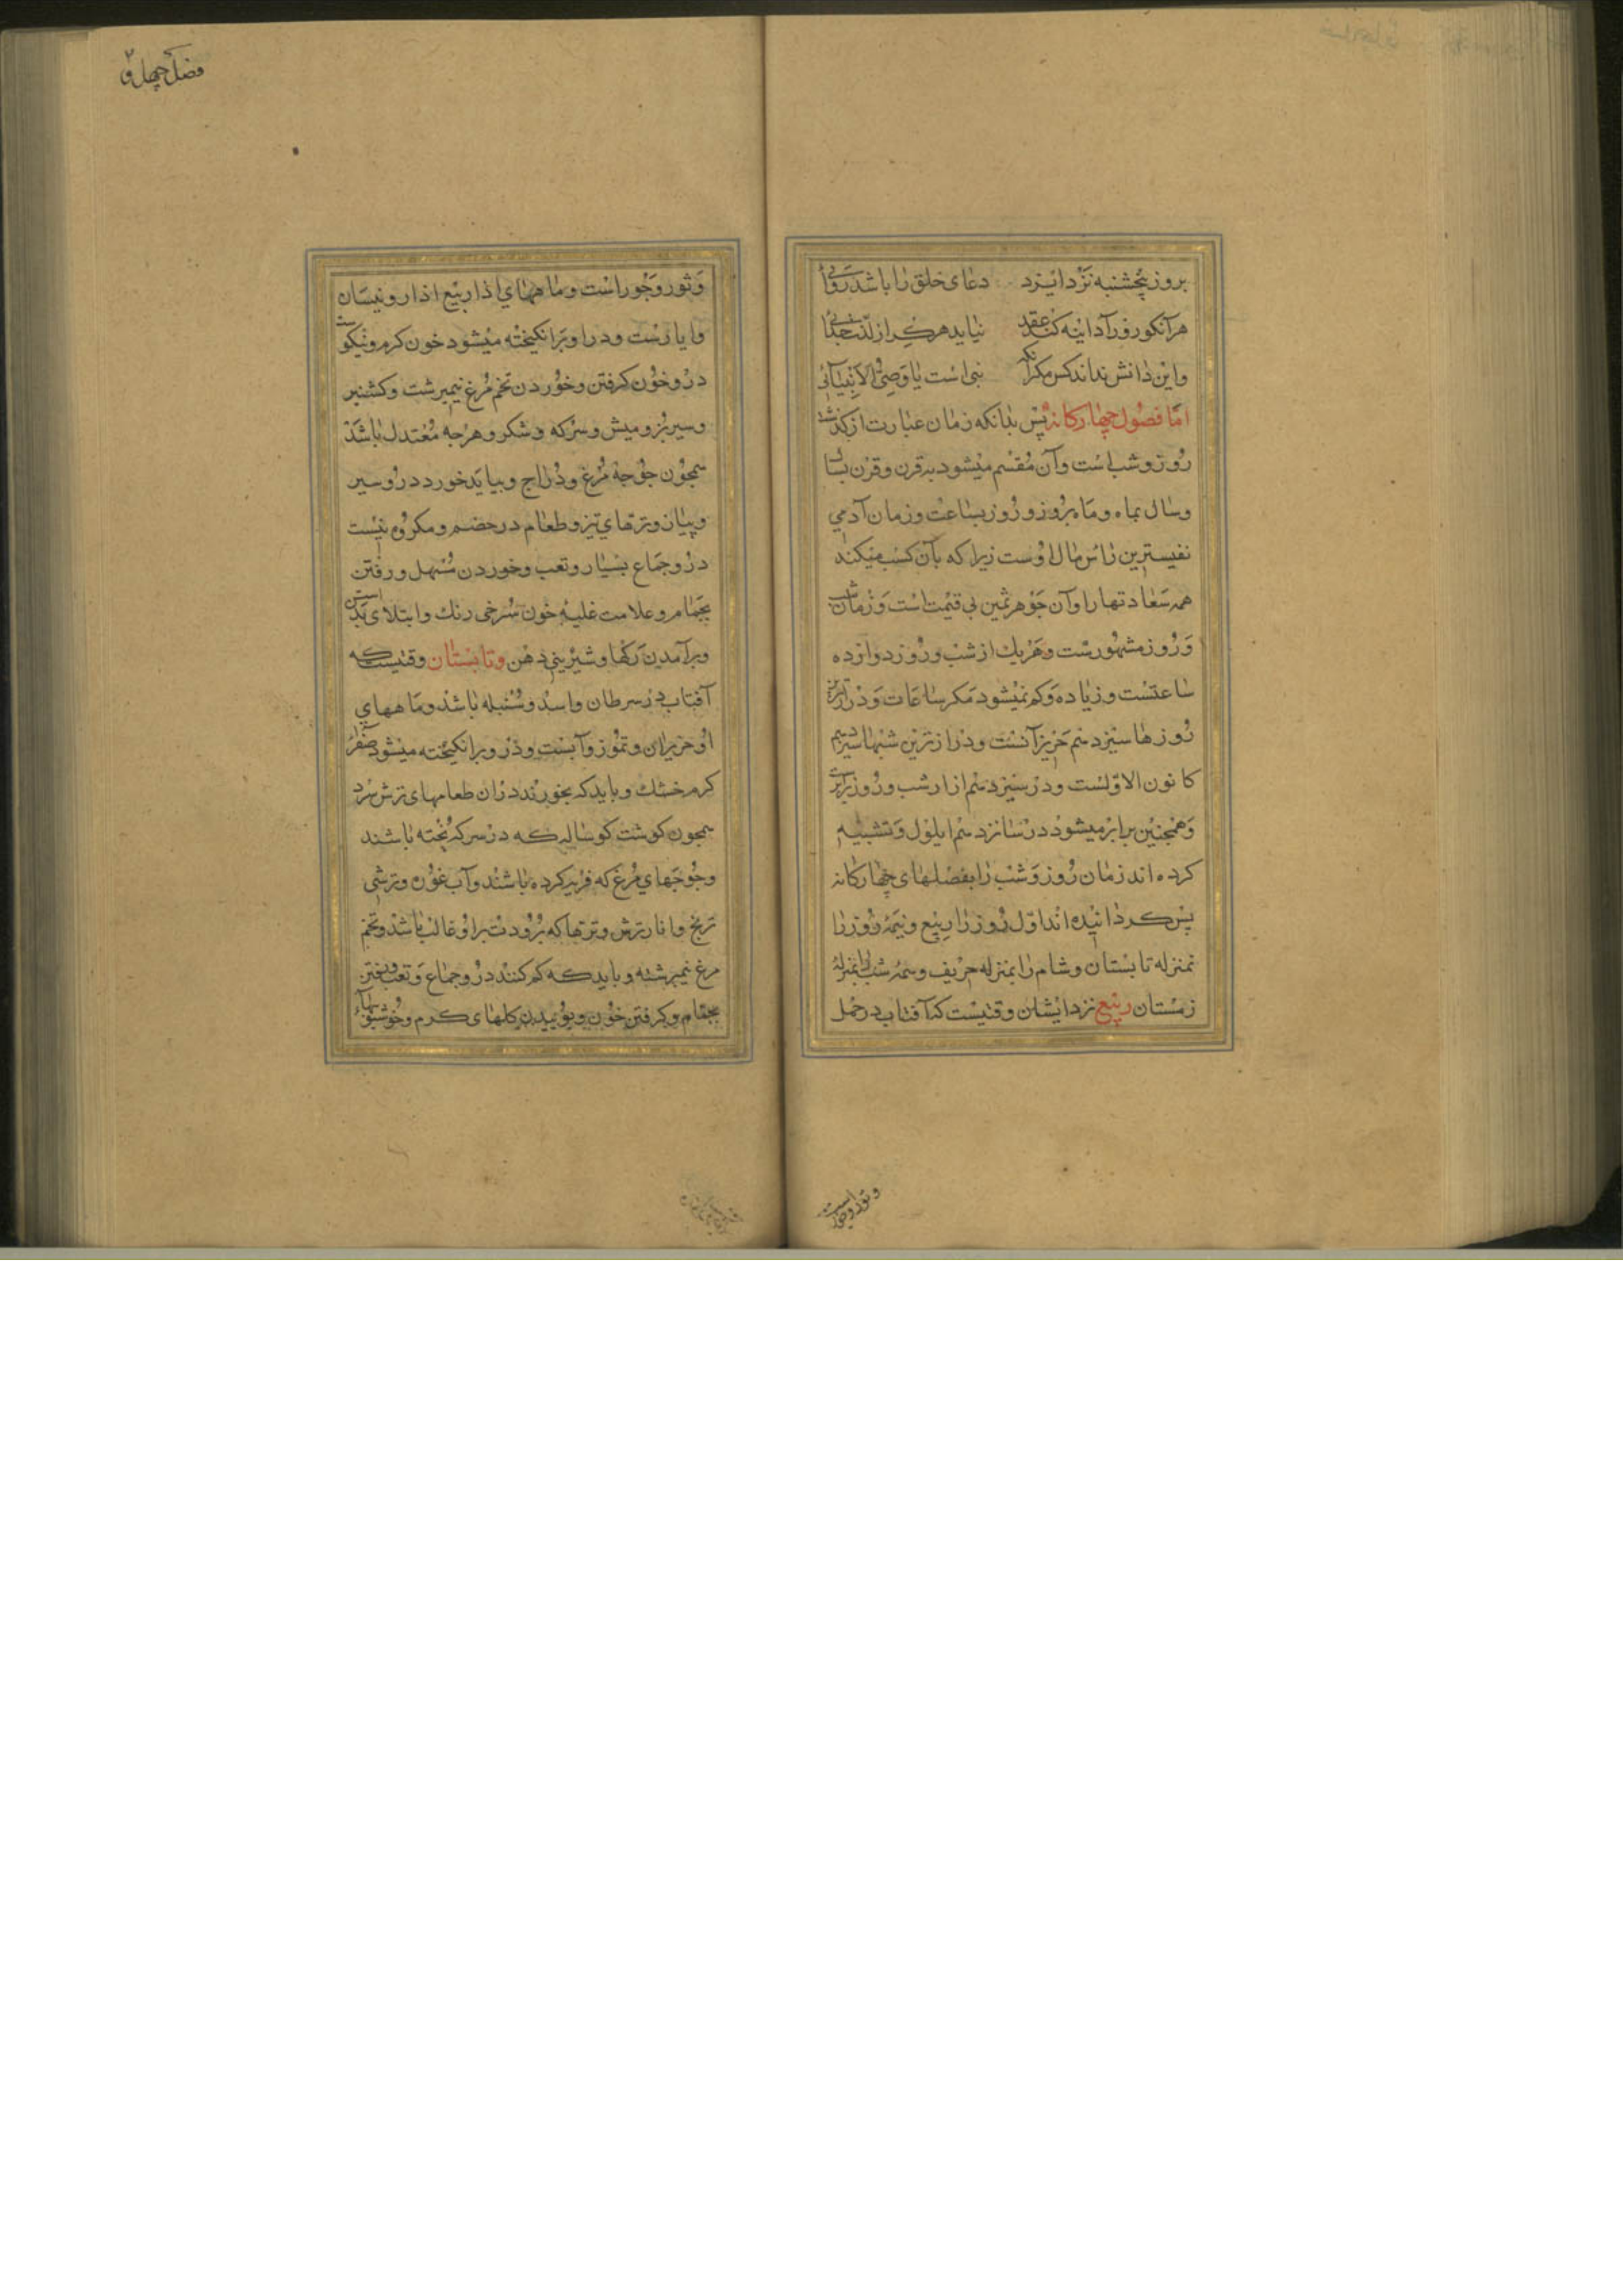 بروز پنجشنبه نزد ایزد دعای خلق را باشد روائی
هرآنکو روز آدینه کند عقد نیاید هرگز از لذت جدائی
واین دانش نداند کس مکر آنکه نبی است یا وصی الانبیائی
امّا فصول چهارکانه پس بدانکه زمان عبارت از کذشتن
روز وشب است وآن مقسم میشود بقرن وقرن بسال
وسال بماه وماه بروز وروز بساعت وزمان آدمی
نفیسترین رأس مال اوست زیرا که بآن کسب میکند
همه سعادتهارا وآن جوهر ثمین بی قیمت است وزمان شب
وروز مشهورست وهریك از شب وروز دوازده
ساعتست وزیاده وکم نمیشود مکر ساعات ودرازترین
روزها سیزدهم حزیرانست ودرازترین شبها سیزدهم
کانون الاوّلست ودر سیزدهم اذار شب وروز برابر
وهمچنین برابر میشود در شانزدهم ایلول وتشبیه
کرده اند زمان روز وشب را بفصلهای چهارکانه
پس کردانیده اند اوّل روز را ربیع ونیمۀ روز را
بمنزله تابستان وشام را بمنزله خریف ونیمه شب را بمنزلۀ
زمستان ربیع نزد ایشان وقتیست که آفتاب در حمل
وثور وجوز است
وثور وجوزاست وماههای اذار ربیع اذار ونیسان
وایارست ودر او برانکیخته میشود خون کرم ونیکوست
درو خون کرفتن وخوردن تخم مرغ نیمبرشت وکشنیز
وسیر بز ومیش وسرکه وشکر وهرچه معتدل باشد
همچون جوجۀ مرغ ودراج وبیاید خورد درو سیر
وپیاز وترهای تیز وطعام در هضم ومکروه نیست
درو جماع بسیار وتعب وخوردن مسهل ورفتن
بحمام وعلامت غلبۀ خون سرخی رنك وابتلای بدنست
وبرآمدن رکها وشیرینی دهن وتابستان وقتیست که
آفتاب در سرطان واسد وسنبله باشد وماههای
او حزیران وتموز وآبست ودرو برانکیخته میشود صفرا
کرم خشك وباید که بخورند دران طعامهای ترش سرد
همچون کوشت کوساله که در سرکه پخته باشند
وجوجهای مرغ که فربه کرده باشند وآب غوره وترشی
ترنج وانار ترش وترهاکه برودت براو غالب باشد وتخم
مرغ نیمبرشته وباید که کم کنند درو جماع وتعب ورفتن
بحمام وکرفتن خون وبوئیدن کلهای کرم وخوشبوئیها
فصل چهل و